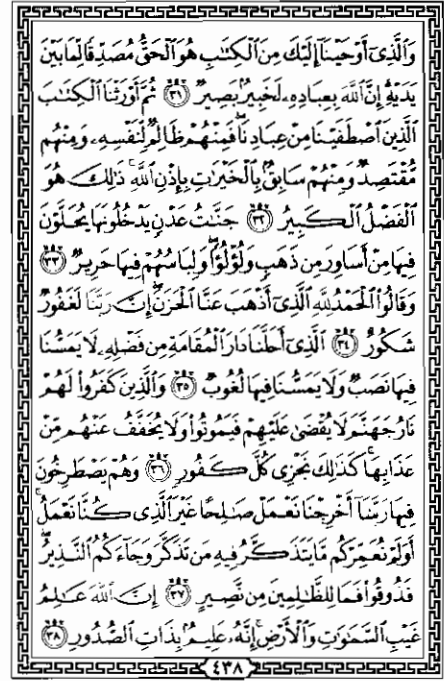 وَٱلَّذِىٓ أَوْحَيْنَآ إِلَيْكَ مِنَ ٱلْكِتَٰبِ هُوَ ٱلْحَقُّ مُصَدِّقًا لِّمَا بَيْنَ
يَدَيْهِ إِنَّ ٱللَّهَ بِعِبَادِهِۦ لَخَبِيرٌۢ بَصِيرٌ ٣١ ثُمَّ أَوْرَثْنَا ٱلْكِتَٰبَ
ٱلَّذِينَ ٱصْطَفَيْنَا مِنْ عِبَادِنَا فَمِنْهُمْ ظَالِمٌ لِّنَفْسِهِۦ وَمِنْهُم
مُّقْتَصِدٌ وَمِنْهُمْ سَابِقٌۢ بِٱلْخَيْرَٰتِ بِإِذْنِ ٱللَّهِ ذَٰلِكَ هُوَ
ٱلْفَضْلُ ٱلْكَبِيرُ ٣٢ جَنَّٰتُ عَدْنٍ يَدْخُلُونَهَا يُحَلَّوْنَ
فِيهَا مِنْ أَسَاوِرَ مِن ذَهَبٍ وَلُؤْلُؤًا وَلِبَاسُهُمْ فِيهَا حَرِيرٌ ٣٣
وَقَالُوا۟ ٱلْحَمْدُ لِلَّهِ ٱلَّذِىٓ أَذْهَبَ عَنَّا ٱلْحَزَنَ إِنَّ رَبَّنَا لَغَفُورٌ
شَكُورٌ ٣٤ ٱلَّذِىٓ أَحَلَّنَا دَارَ ٱلْمُقَامَةِ مِن فَضْلِهِۦ لَا يَمَسُّنَا
فِيهَا نَصَبٌ وَلَا يَمَسُّنَا فِيهَا لُغُوبٌ ٣٥ وَٱلَّذِينَ كَفَرُوا۟ لَهُمْ
نَارُ جَهَنَّمَ لَا يُقْضَىٰ عَلَيْهِمْ فَيَمُوتُوا۟ وَلَا يُخَفَّفُ عَنْهُم مِّنْ
عَذَابِهَا كَذَٰلِكَ نَجْزِى كُلَّ كَفُورٍ ٣٦ وَهُمْ يَصْطَرِخُونَ
فِيهَا رَبَّنَآ أَخْرِجْنَا نَعْمَلْ صَٰلِحًا غَيْرَ ٱلَّذِى كُنَّا نَعْمَلُ
أَوَلَمْ نُعَمِّرْكُم مَّا يَتَذَكَّرُ فِيهِ مَن تَذَكَّرَ وَجَآءَكُمُ ٱلنَّذِيرُ
فَذُوقُوا۟ فَمَا لِلظَّٰلِمِينَ مِن نَّصِيرٍ ٣٧ إِنَّ ٱللَّهَ عَٰلِمُ
غَيْبِ ٱلسَّمَٰوَٰتِ وَٱلْأَرْضِ إِنَّهُۥ عَلِيمٌۢ بِذَاتِ ٱلصُّدُورِ ٣٨
٤٣٨